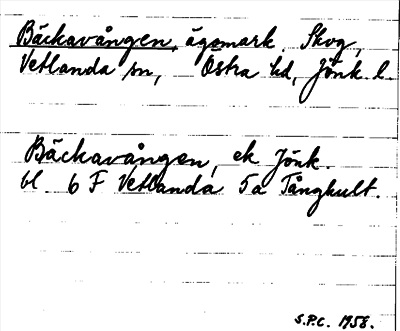 Bäckavången, ägomark. Skog,
Vetlanda sn, Östra hd, Jönk. l.
Bäckavången, ek Jönk.
bl. 6 F Vetlanda 5a Tånghult.
S.P.C. 1958.